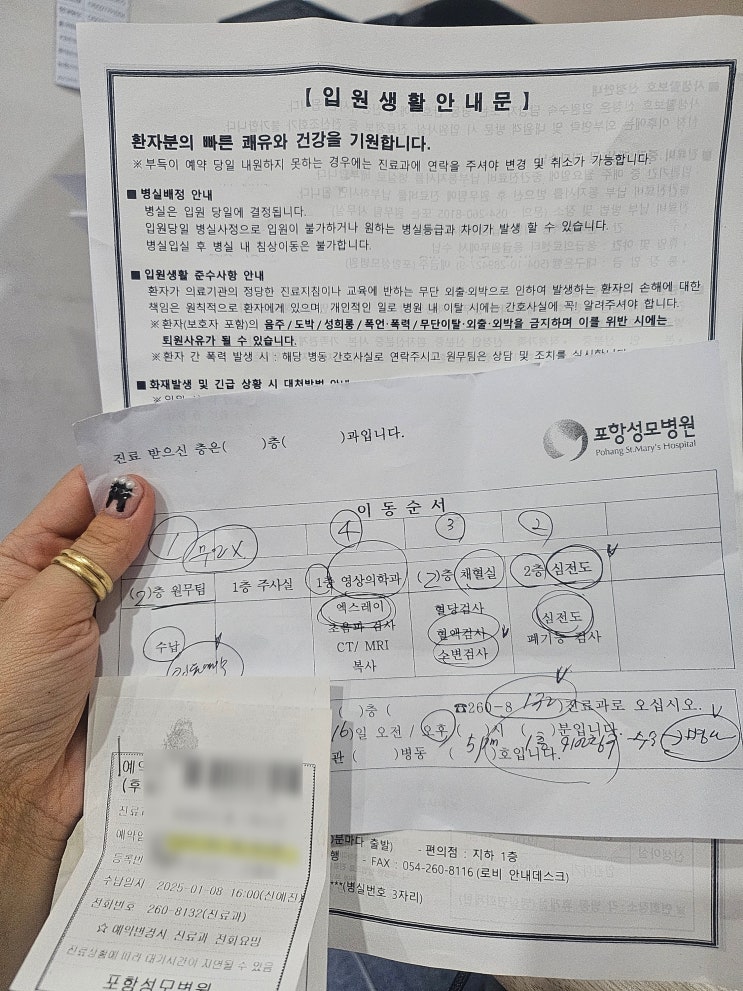 【 입 원 생 활 안 내 문 】
환자분의 빠른 쾌유와 건강을 기원합니다.
※ 부득이 예약 당일 내원하지 못하는 경우에는 진료과에 연락을 주셔야 변경 및 취소가 가능합니다.
■ 병실배정 안내
병실은 입원 당일에 결정됩니다.
입원당일 병실사정으로 입원이 불가하거나 원하는 병실등급과 차이가 발생 할 수 있습니다.
병실입실 후 병실 내 침상이동은 불가합니다.
■ 입원생활 준수사항 안내
환자가 의료기관의 정당한 진료지침이나 교육에 반하는 무단 외출·외박으로 인하여 발생하는 환자의 손해에 대한
책임은 원칙적으로 환자에게 있으며, 개인적인 일로 병원 내 이탈 시에는 간호사실에 꼭! 알려주셔야 합니다.
※ 환자(보호자 포함)의 음주 / 도박 / 성희롱 / 폭언·폭력 / 무단이탈·외출·외박을 금지하며 이를 위반 시에는
퇴원사유가 될 수 있습니다.
※ 환자 간 폭력 발생 시 : 해당 병동 간호사실로 연락주시고 원무팀은 상담 및 조치를 실시합니다.
■ 화재발생 및 긴급 상황 시 대처방법 안내
진료 받으신 층은( )층( )과입니다.
포항성모병원
Pohang St.Mary's Hospital
이 동 순 서
1 ④ ③ ②
(2)층 원무팀 1층 주사실 1층 영상의학과 (2)층 채혈실 2층 심전도
수납 엑스레이 혈당검사 심전도
초음파 검사 혈액검사 폐기능 검사
CT/ MRI 소변검사
복사
( )층 ( ☎260-8 132)진료과로 오십시오.
16)일 오전 / 오후 ( )시 ( )분입니다.
관 ( )병동 ( )호입니다.
예약
(후
진료
예약일
등록번
수납일시 2025-01-08 16:00(신예진)
전화번호 260-8132(진료과)
☆ 예약변경시 진료과 전화요망
진료상황에 따라 대기시간이 지연될 수 있음
포항성모병원
)분마다 출발) - 편의점 : 지하 1층
행 - FAX : 054-260-8116 (로비 안내데스크)
***(병실번호 3자리)